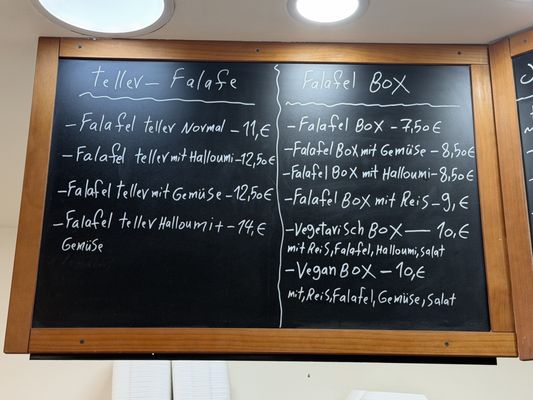 teller - Falafe
- Falafel teller Normal - 11,€
- Falafel teller mit Halloumi - 12,50€
- Falafel teller mit Gemüse - 12,50€
- Falafel teller Halloumi + - 14,€
Gemüse
Falafel BOX
- Falafel BOX - 7,50€
- Falafel BOX mit Gemüse - 8,50€
- Falafel BOX mit Halloumi - 8,50€
- Falafel BOX mit Reis - 9,€
- Vegetarisch BOX — 10,€
mit Reis, Falafel, Halloumi, salat
- Vegan BOX - 10,€
mit, Reis, Falafel, Gemüse, Salat